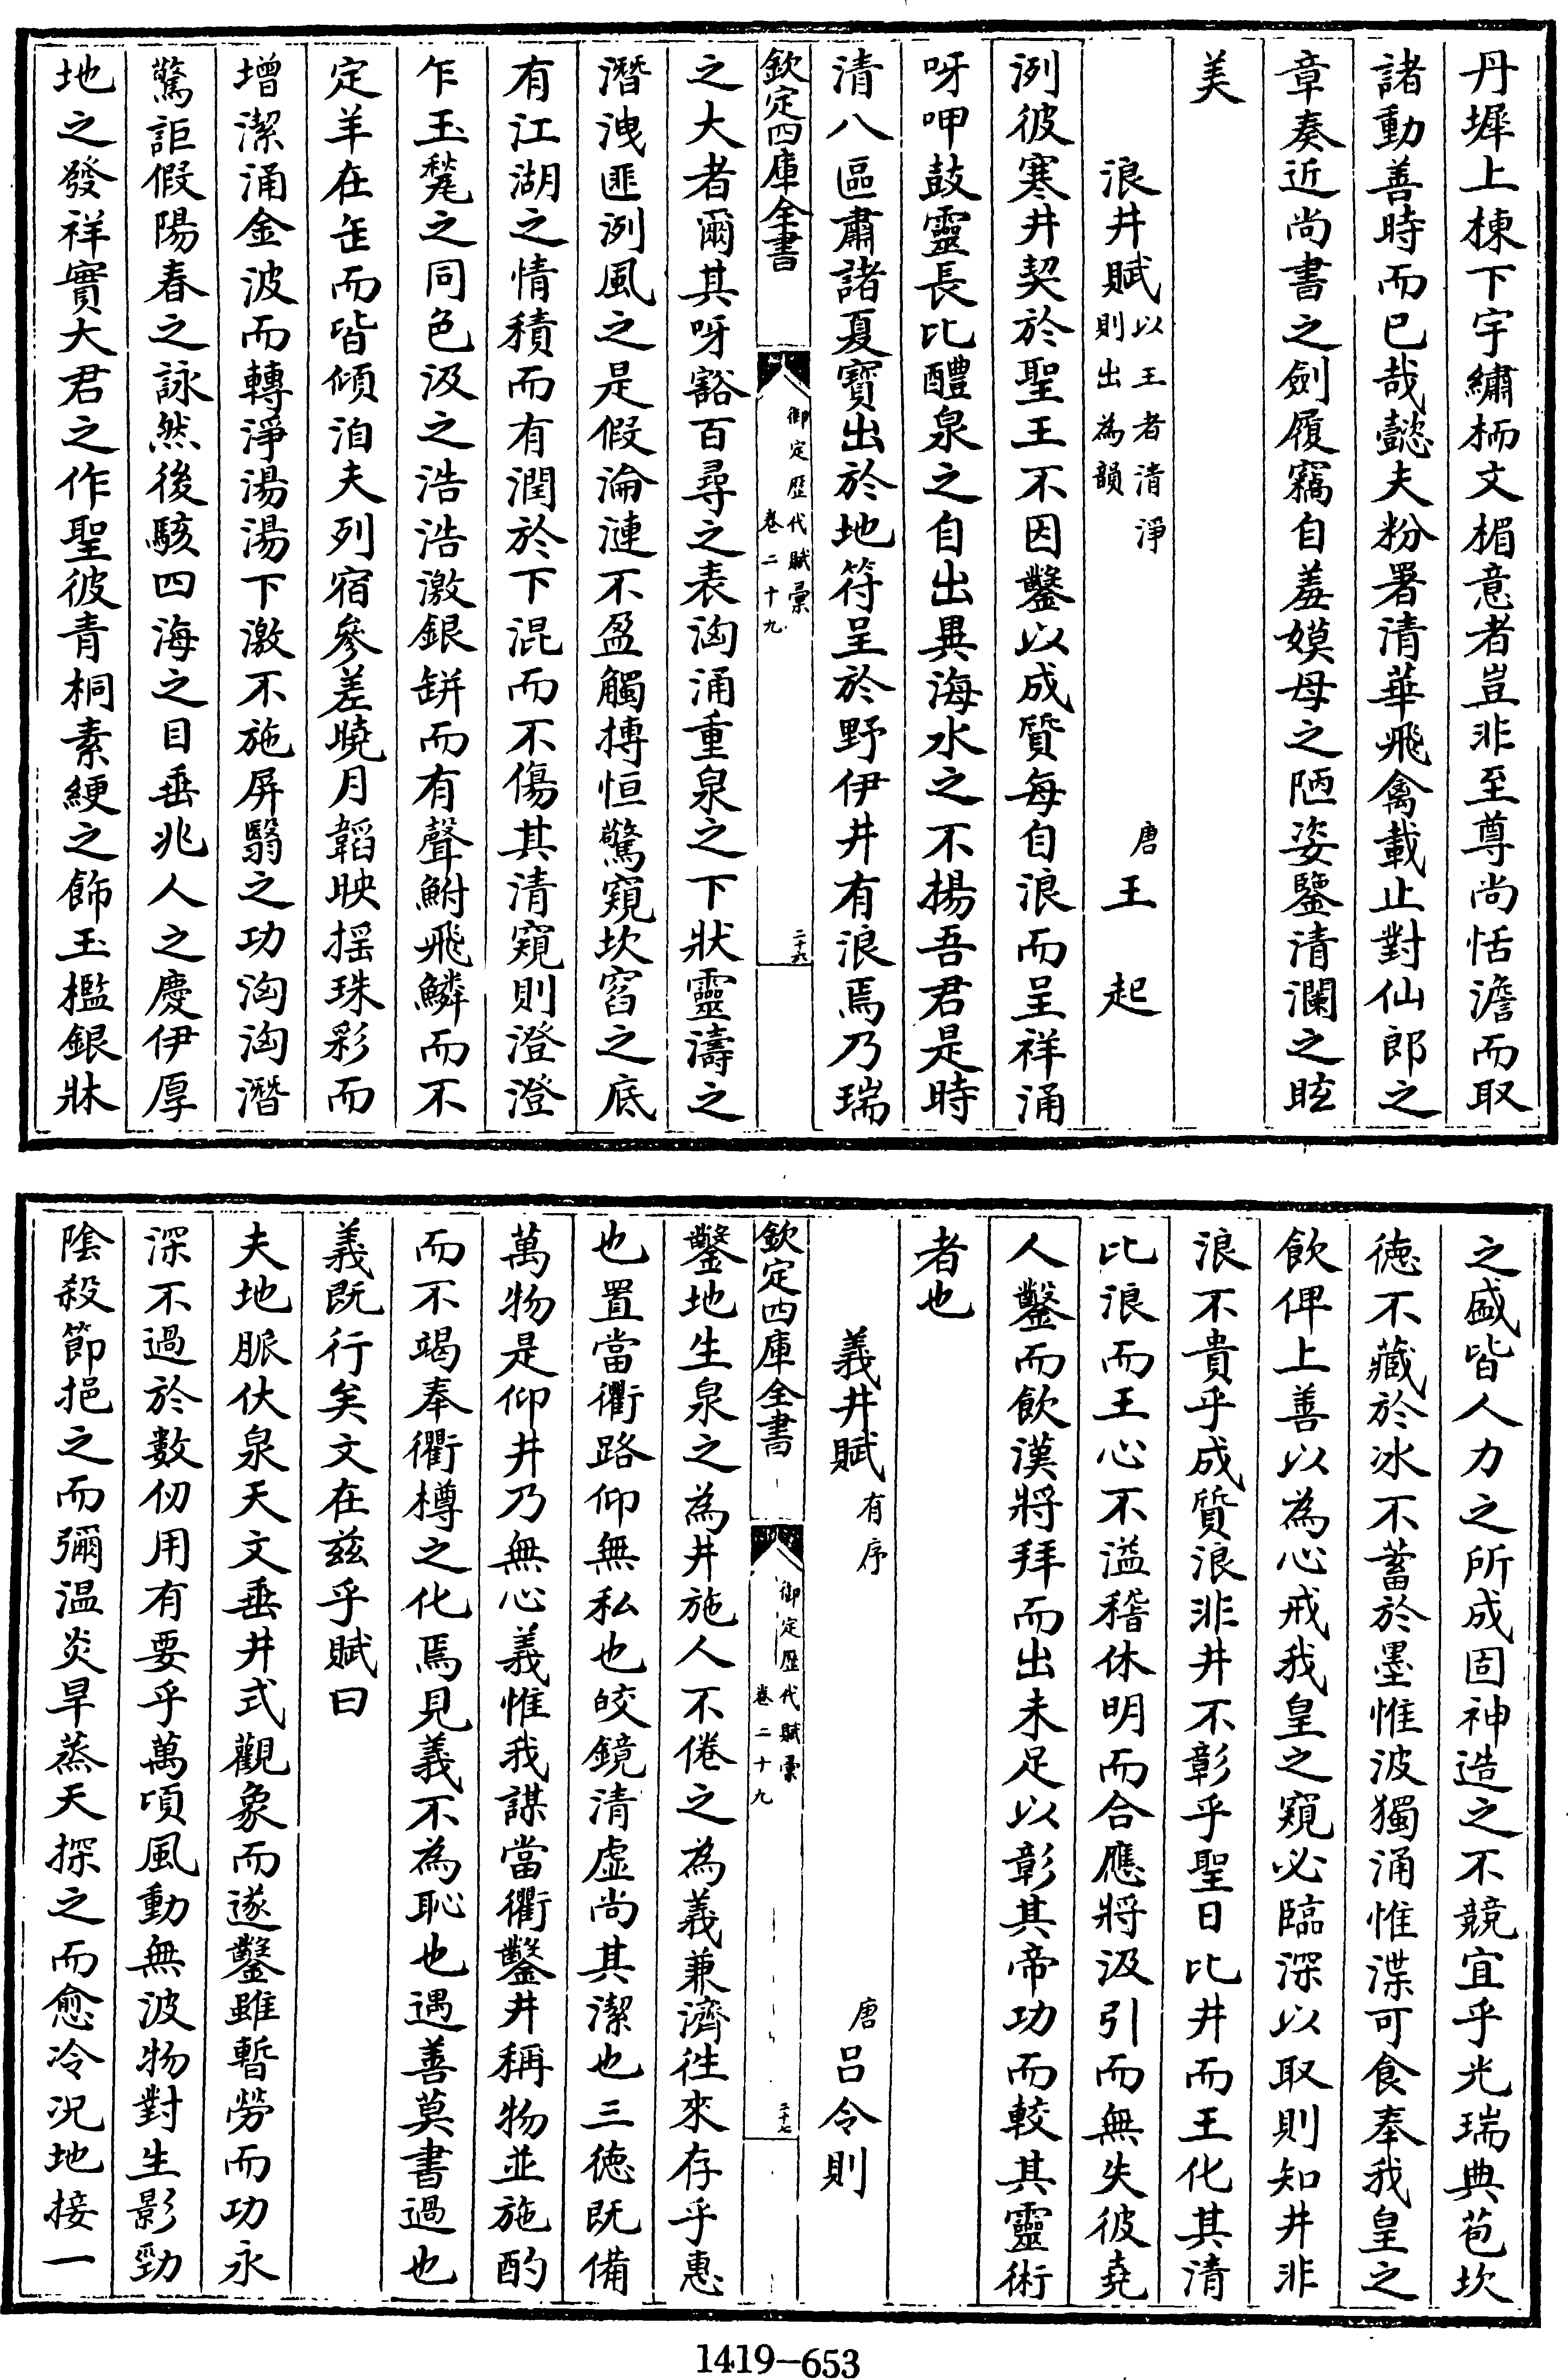 丹墀上棟下宇繡栭文楣意者豈非至尊尚恬澹而取
諸動善時而已哉懿夫粉署清華飛禽載止對仙郎之
章奏近尚書之劍履竊自羞嫫母之陋姿鑒清瀾之眩
美
浪井賦以王者清淨則出為韻 唐王起
洌彼寒井契於聖王不因鑿以成質每自浪而呈祥涌
呀呷鼓靈長比醴泉之自出異海水之不揚吾君是時
清八區肅諸夏寶出於地符呈於野伊井有浪焉乃瑞
欽定四庫全書 御定歷代賦彙卷二十九 二十六
之大者爾其呀豁百尋之表洶涌重泉之下狀靈濤之
潛洩匪洌風之是假淪漣不盈觸搏恒驚窺坎窞之底
有江湖之情積而有潤於下混而不傷其清窺則澄澄
乍玉甃之同色汲之浩浩激銀缾而有聲鮒飛鱗而不
定羊在缶而皆傾洎夫列宿參差曉月韜映揺珠彩而
增潔涌金波而轉淨湯湯下激不施屏翳之功洶洶潛
驚詎假陽春之詠然後駭四海之目垂兆人之慶伊厚
地之發祥實大君之作聖彼青桐素綆之飾玉檻銀牀
之盛皆人力之所成固神造之不競宜乎光瑞典苞坎
德不藏於冰不蓄於墨惟波獨涌惟渫可食奉我皇之
飲俾上善以為心戒我皇之窺必臨深以取則知井非
浪不貴乎成質浪非井不彰乎聖日比井而王化其清
比浪而王心不溢稽休明而合應將汲引而無失彼堯
人鑿而飲漢將拜而出未足以彰其帝功而較其靈術
者也
義井賦有序 唐呂令則
欽定四庫全書 御定歷代賦彙卷二十九 二十七
鑿地生泉之為井施人不倦之為義兼濟徃來存乎惠
也置當衢路仰無私也皎鏡清虛尚其潔也三德既備
萬物是仰井乃無心義惟我謀當衢鑿井稱物並施酌
而不竭奉衢樽之化焉見義不為恥也遇善莫書過也
義既行矣文在兹乎賦曰
夫地脈伏泉天文垂井式觀象而遂鑿雖暫勞而功永
深不過於數仞用有要乎萬頃風動無波物對生影勁
陰殺節挹之而彌温炎旱蒸天探之而愈冷況地接一
1419—653